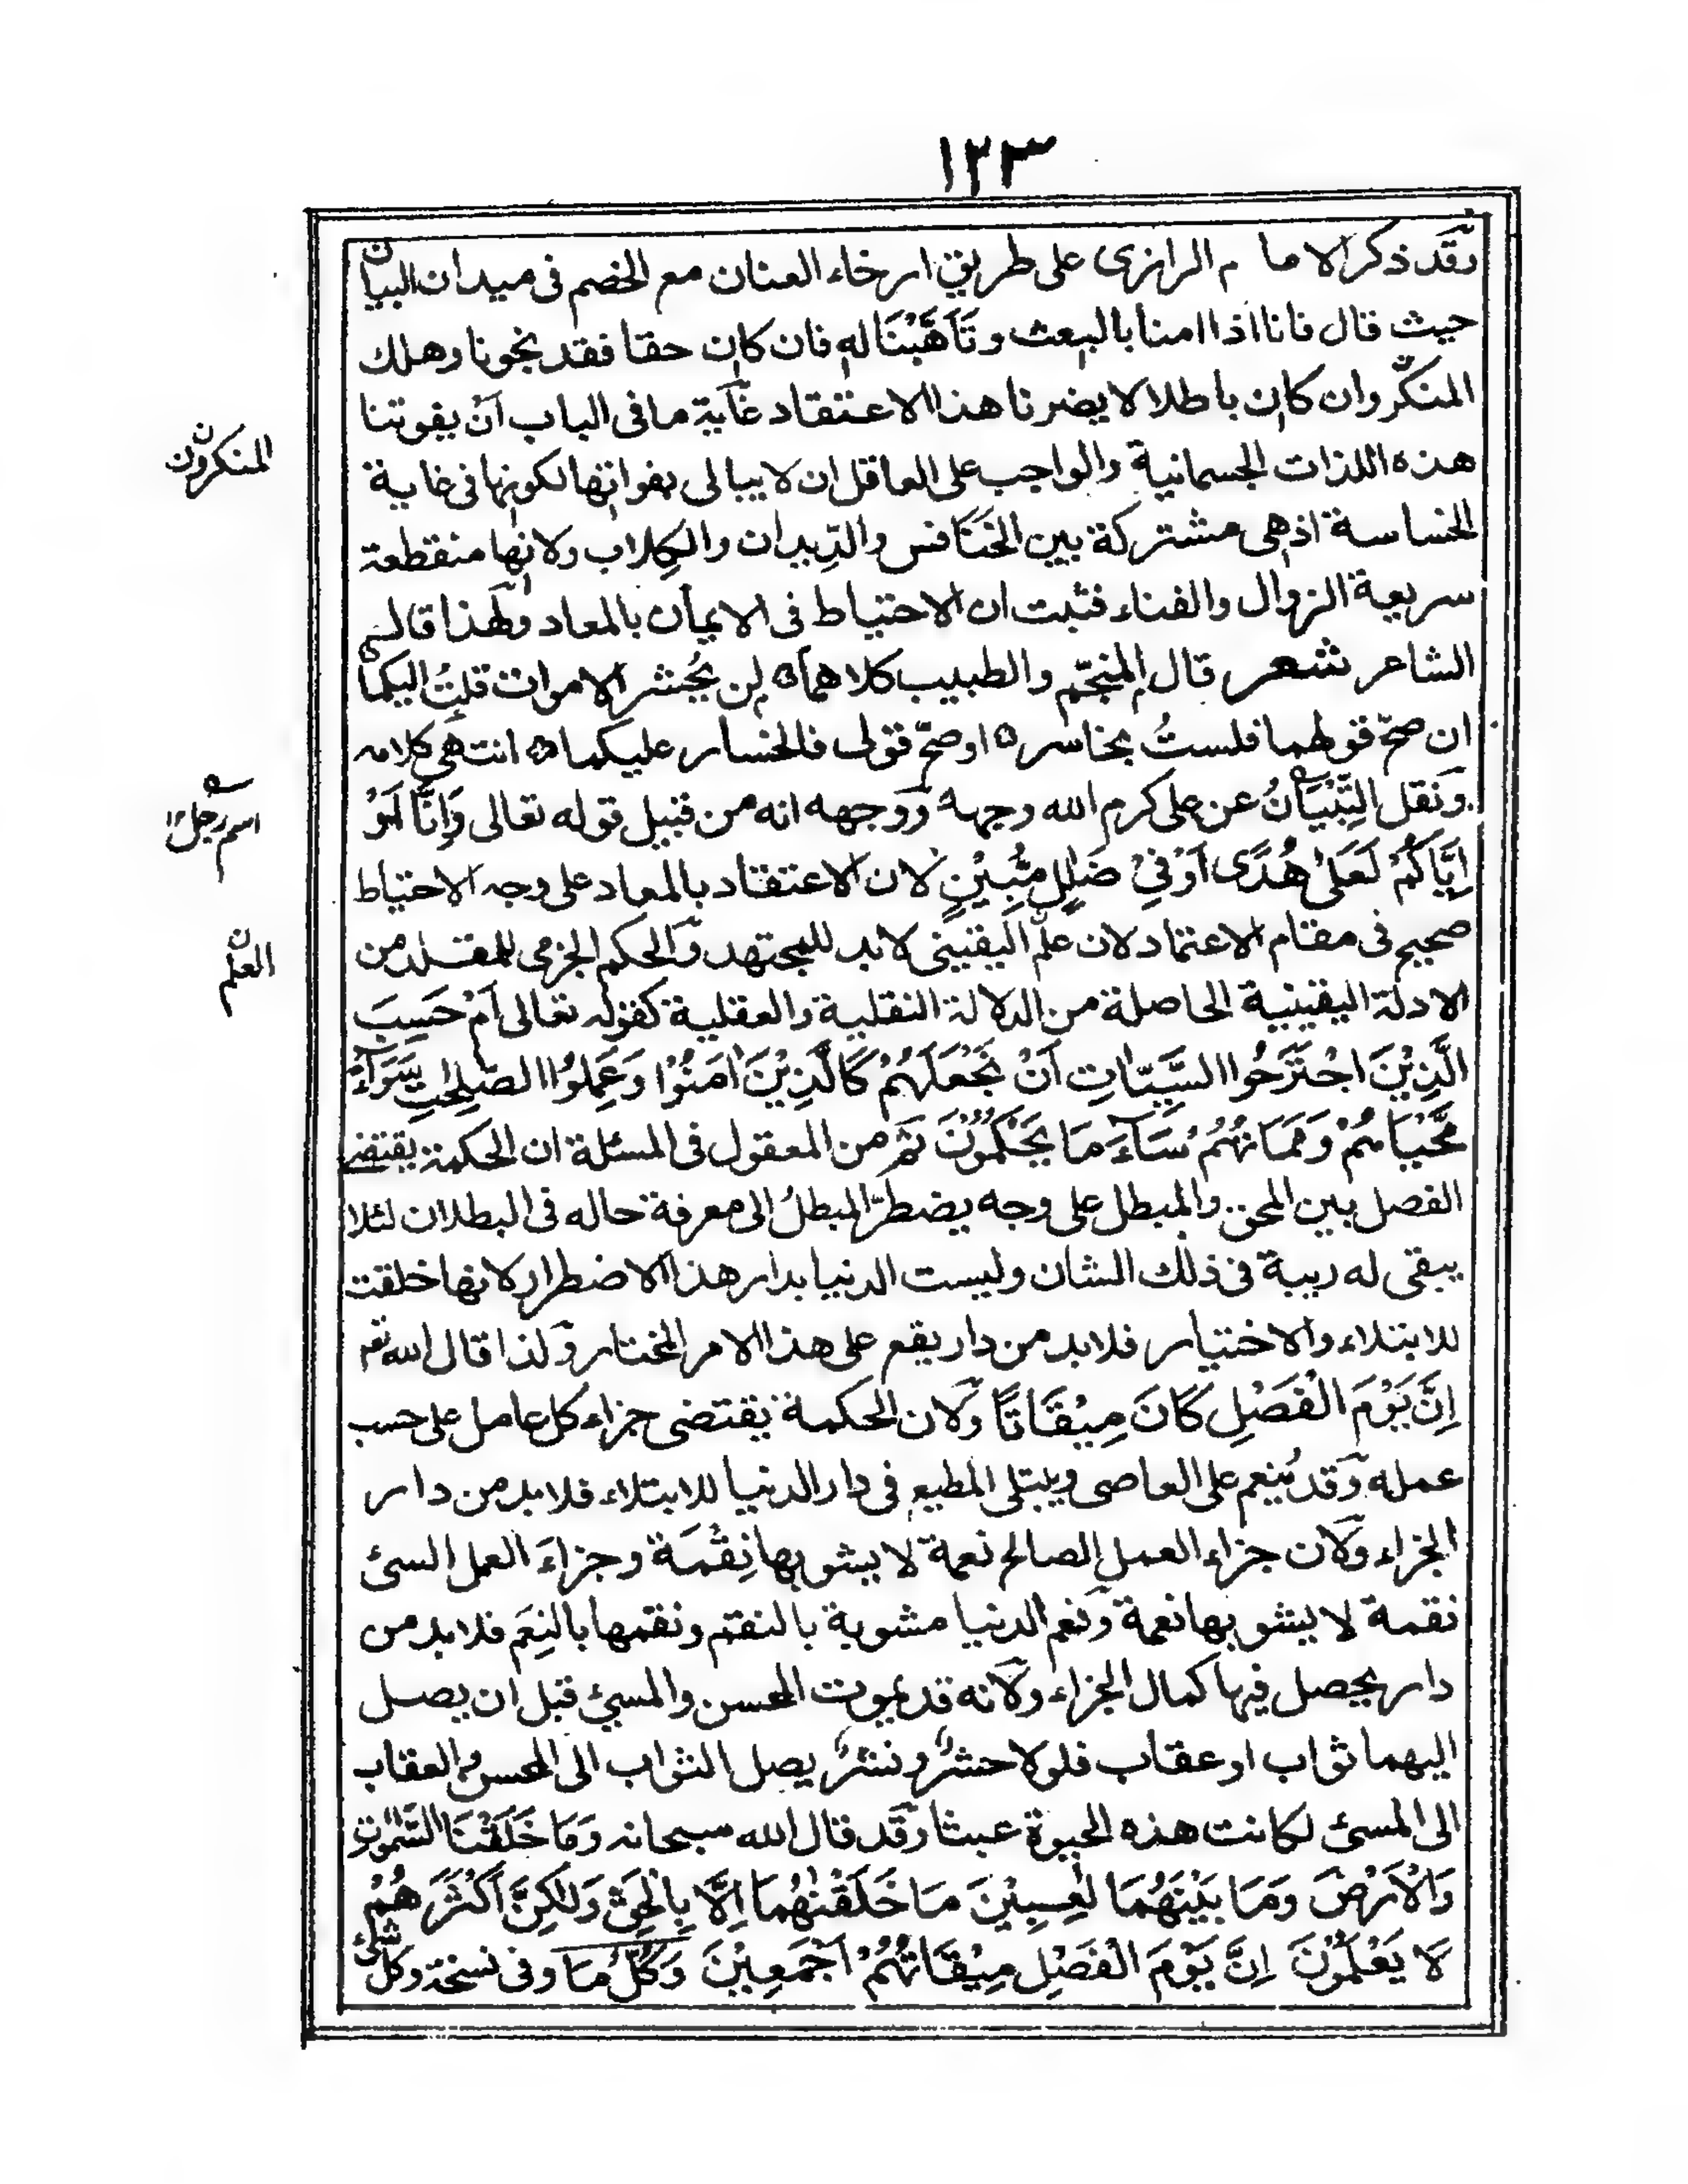 ١٢٣
وقد ذكر الامام الرازى على طريق ارخاء العنان مع الخضم فى ميدان البيان
حيث قال فانا اذا امنا بالبعث وتَاَهَّبْنَا له فان كان حقا فقد نجونا وهلك
المنكر وان كان باطلا لا يضرنا هذا الاعتقاد غاية ما فى الباب اَنْ يفوتنا
هذه اللذات الجسمانية والواجب على العاقل ان لا يبالى بفواتها لكونها فى غاية
الخساسة اذ هى مشتركة بين الخَنَافس والدِّيدان والكِلاب ولانها منقطعة
سريعة الزوال والفناء فثبت ان الاحتياط فى الايمان بالمعاد ولهذا قال
الشاعر شعر قال المنجّم والطبيب كلاهما ۞ لن يُحشر الاموات قلتُ اليكما
ان صحّ قولهما فلستُ بخاسر ۞ او صحّ قولى فالخسار عليكما ۞ انتهى كلامه
ونقل التِّبْيَانُ عن على كرم الله وجهه ووجهه انه من قبيل قوله تعالى وَاِنَّا اَوْ
اِيَّاكُمْ لَعَلٰى هُدًى اَوْ فِيْ ضَلٰلٍ مُّبِيْنٍ لان الاعتقاد بالمعاد على وجه الاحتياط
صحيح فى مقام الاعتماد لان علم اليقينى لابد للمجتهد والحكم الجزمى للمقلد من
الادلة اليقينية الحاصلة من الدلالة النقلية والعقلية كقوله تعالى اَمْ حَسِبَ
الَّذِيْنَ اجْتَرَحُوا السَّيِّاٰتِ اَنْ نَّجْعَلَهُمْ كَالَّذِيْنَ اٰمَنُوْا وَعَمِلُوا الصّٰلِحٰتِ سَوَآءً
مَّحْيَاهُمْ وَمَمَاتُهُمْ سَآءَ مَا يَحْكُمُوْنَ ثم من المعقول فى المسئلة ان الحكمة يقتضى
الفصل بين المحق والمبطل على وجه يضطرّ المبطلُ الى معرفة حاله فى البطلان لئلا
يبقى له ريبة فى ذلك الشان وليست الدنيا بدار هذا الاضطرار لانها خلقت
للابتلاء والاختيار فلابد من دار يقع على هذا الامر المختار ولذا قال الله تع
اِنَّ يَوْمَ الْفَصْلِ كَانَ مِيْقَاتًا ولان الحكمة يقتضى جزاء كل عامل على حسب
عمله وقد يُنعم على العاصى ويبتلى المطيع فى دار الدنيا للابتلاء فلابد من دار
الجزاء ولان جزاء العمل الصالح نعمة لا يشوبها نِقْمَة وجزاءَ العمل السئ
نقمة لا يشوبها نعمة ونعم الدنيا مشوبة بالنقم ونقمها بالنِعَم فلابد من
دار يحصل فيها كمال الجزاء ولانه قد يموت المحسن والمسئ قبل ان يصل
اليهما ثواب او عقاب فلولا حشرٌ ونشرٌ يصل الثواب الى المحسن والعقاب
الى المسئ لكانت هذه الحيوة عبثا وقد قال الله سبحانه وَمَا خَلَقْنَا السَّمٰوٰتِ
وَالْاَرْضَ وَمَا بَيْنَهُمَا لٰعِبِيْنَ مَا خَلَقْنٰهُمَا اِلَّا بِالْحَقِّ وَلٰكِنَّ اَكْثَرَهُمْ
لَا يَعْلَمُوْنَ اِنَّ يَوْمَ الْفَصْلِ مِيْقَاتُهُمْ اَجْمَعِيْنَ وَكُلُّ مَا وفى نسخة وكل شئ
المنكرون ن
اسم رجل ١٢
العلم ن